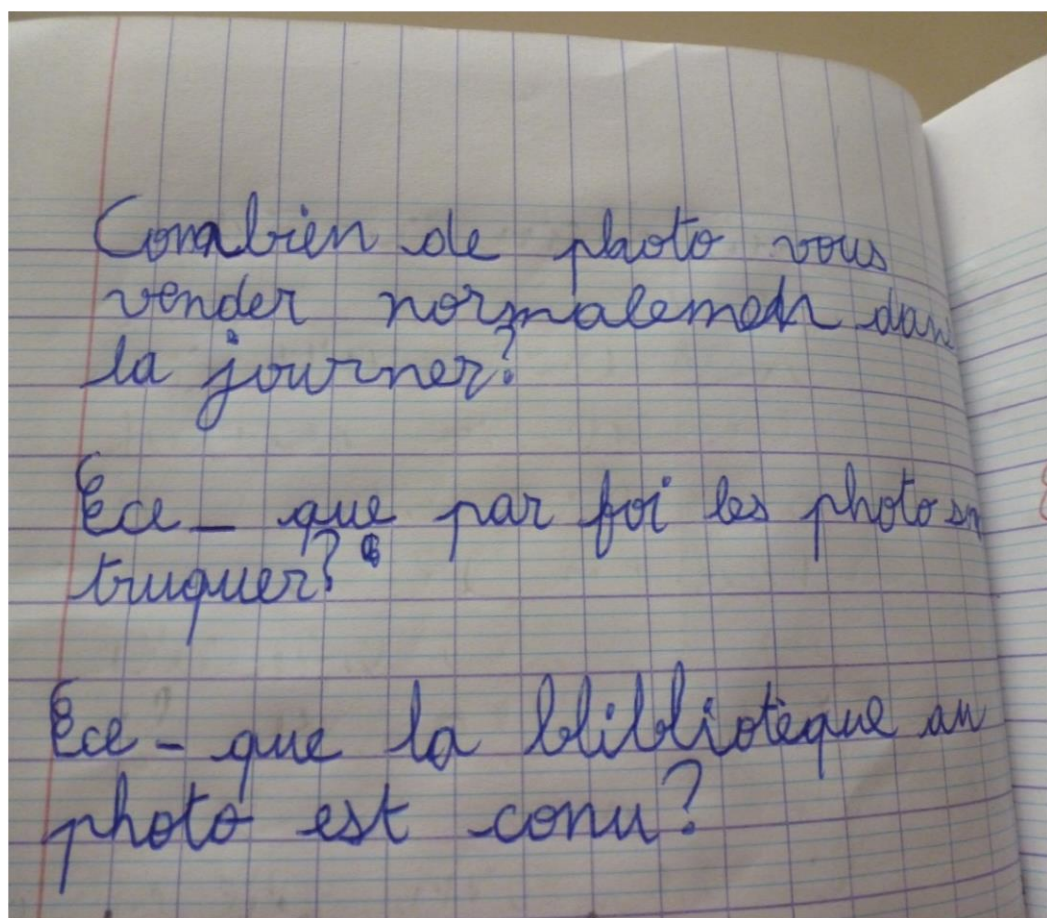 Combien de photo vous
vender normalemen dans
la journer?
Ece - que par foi les photo sn
truquer?
Ece - que la blibliotèque au
photo est conu?